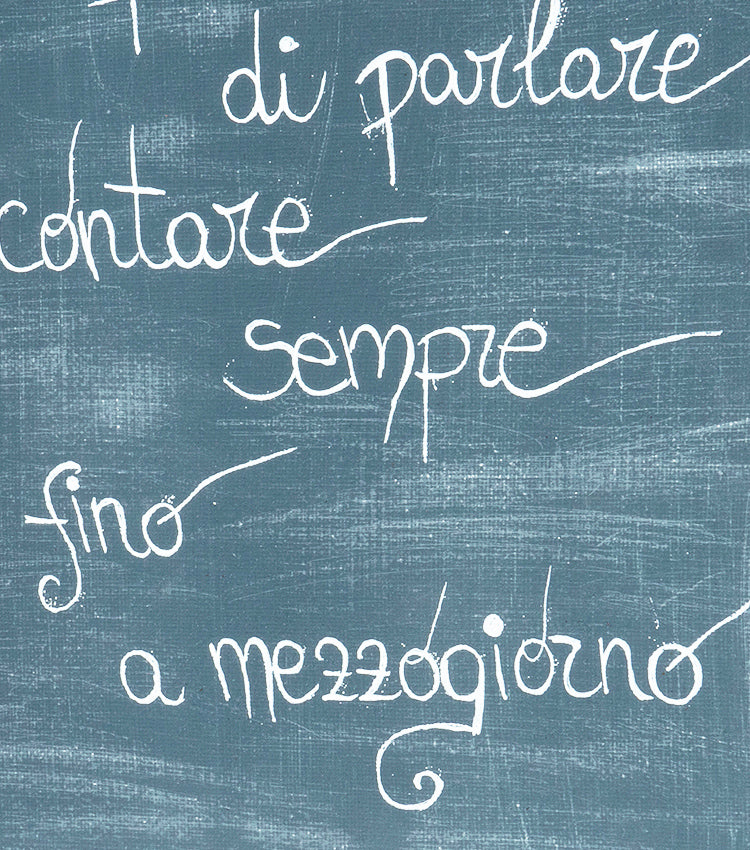 di parlare
contare
sempre
fino
a mezzogiorno